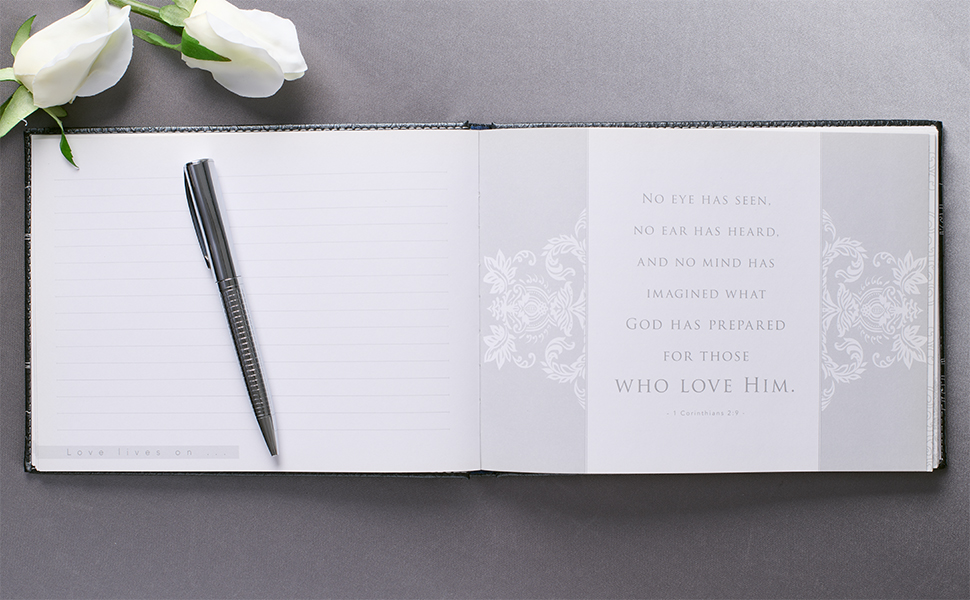 Love lives on ...
No eye has seen,
no ear has heard,
and no mind has
imagined what
God has prepared
for those
who love Him.
- 1 Corinthians 2:9 -